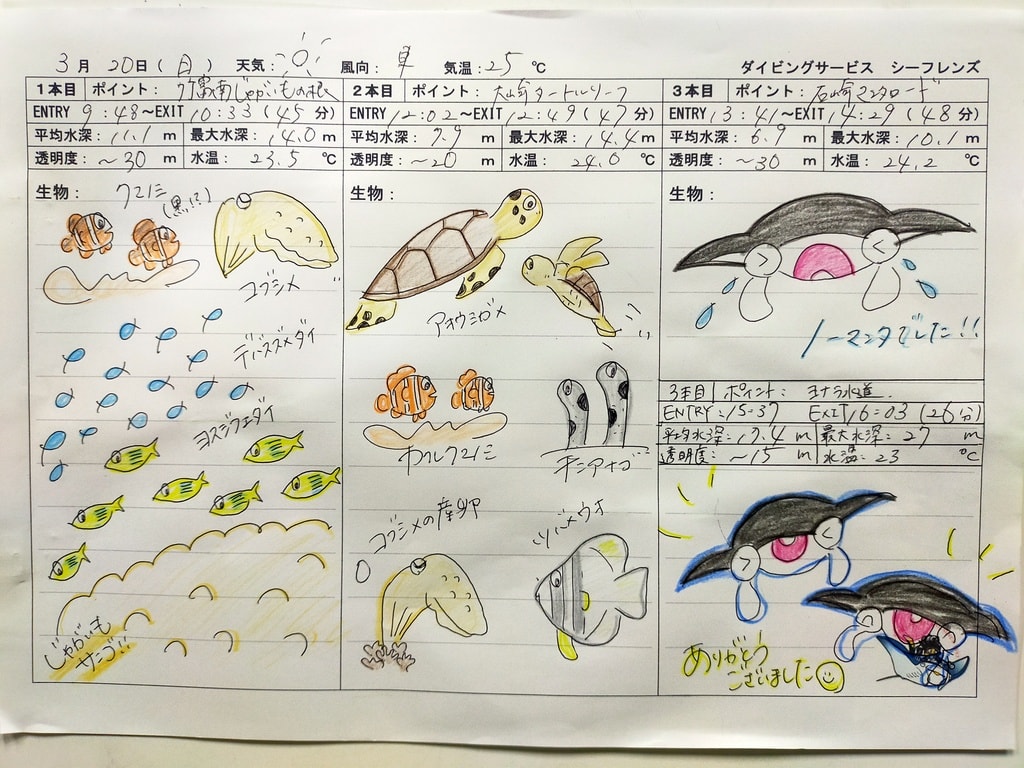 3月 20日(日) 天気: 風向: 気温:25 ℃ ダイビングサービス シーフレンズ
1本目 ポイント: 竹富南じゃがいもの根
ENTRY 9:48~EXIT 10:33(45 分)
平均水深: 11.1 m 最大水深: 14.0 m
透明度: ~30 m 水温: 23.5 ℃
生物:
クマノミ
(黒!?)
コブシメ
デバスズメダイ
ヨスジフエダイ
じゃがいも
サンゴ!!
2本目 ポイント: 大崎タートルリーフ
ENTRY 12:02~EXIT 12:49(47 分)
平均水深: 7.9 m 最大水深: 14.4 m
透明度: ~20 m 水温: 24.0 ℃
生物:
アオウミガメ
カクレクマノミ
チンアナゴ
コブシメの産卵
ツバメウオ
3本目 ポイント: 石崎マンタロード
ENTRY 13:41~EXIT 14:29(48 分)
平均水深: 6.9 m 最大水深: 10.1 m
透明度: ~30 m 水温: 24.2 ℃
生物:
ノーマンタでした!!
3本目 ポイント: ヨナラ水道
ENTRY:15:37 EXIT 16:03 (26分)
平均水深: m 最大水深: 27 m
透明度: ~15 m 水温: 23 ℃
ありがとう
ございました